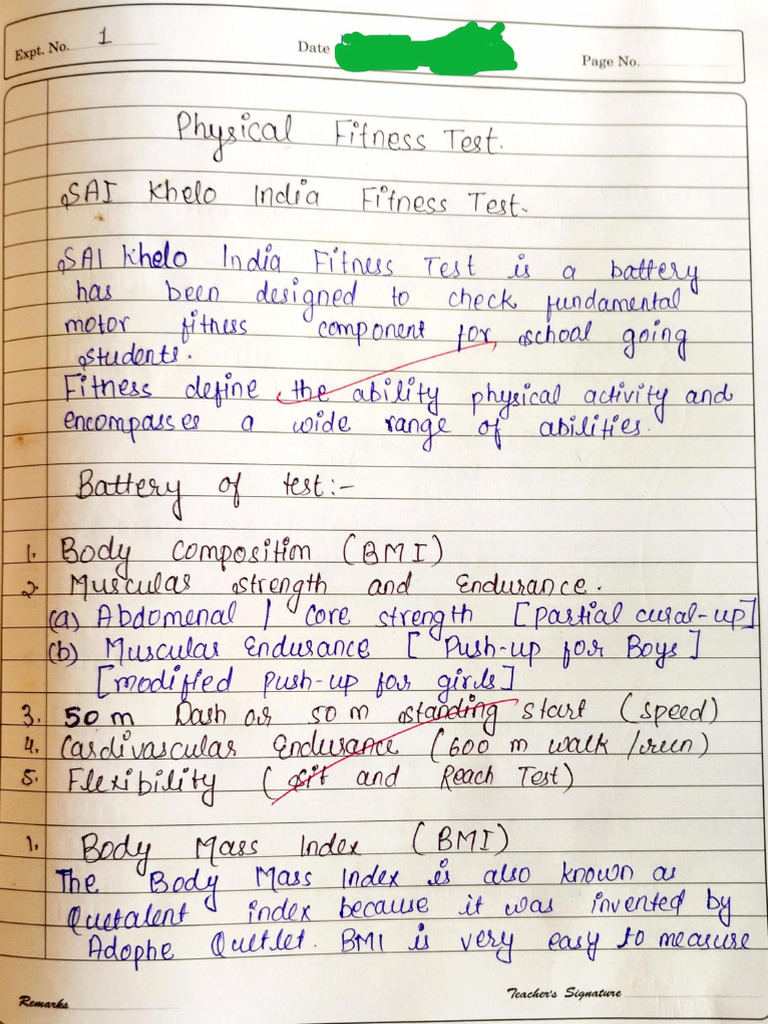 Expt. No. 1
Date
Page No.
Physical Fitness Test.
SAI Khelo India Fitness Test.
SAI Khelo India Fitness Test is a battery
has been designed to check fundamental
motor fitness component for school going
students.
Fitness define the ability physical activity and
encompasses a wide range of abilities.
Battery of test:-
1. Body Composition (BMI)
2. Muscular strength and Endurance.
(a) Abdomenal / core strength [partial cural-up]
(b) Muscular Endurance [Push-up for Boys]
[modified push-up for girls]
3. 50 m Dash or 50 m standing start (speed)
4. Cardivascular Endurance (600 m walk /run)
5. Flexibility (sit and Reach Test)
1. Body Mass Index (BMI)
The Body Mass Index is also known as
Quetalent index because it was invented by
Adophe Quetlet. BMI is very easy to measure
Remarks
Teacher's Signature